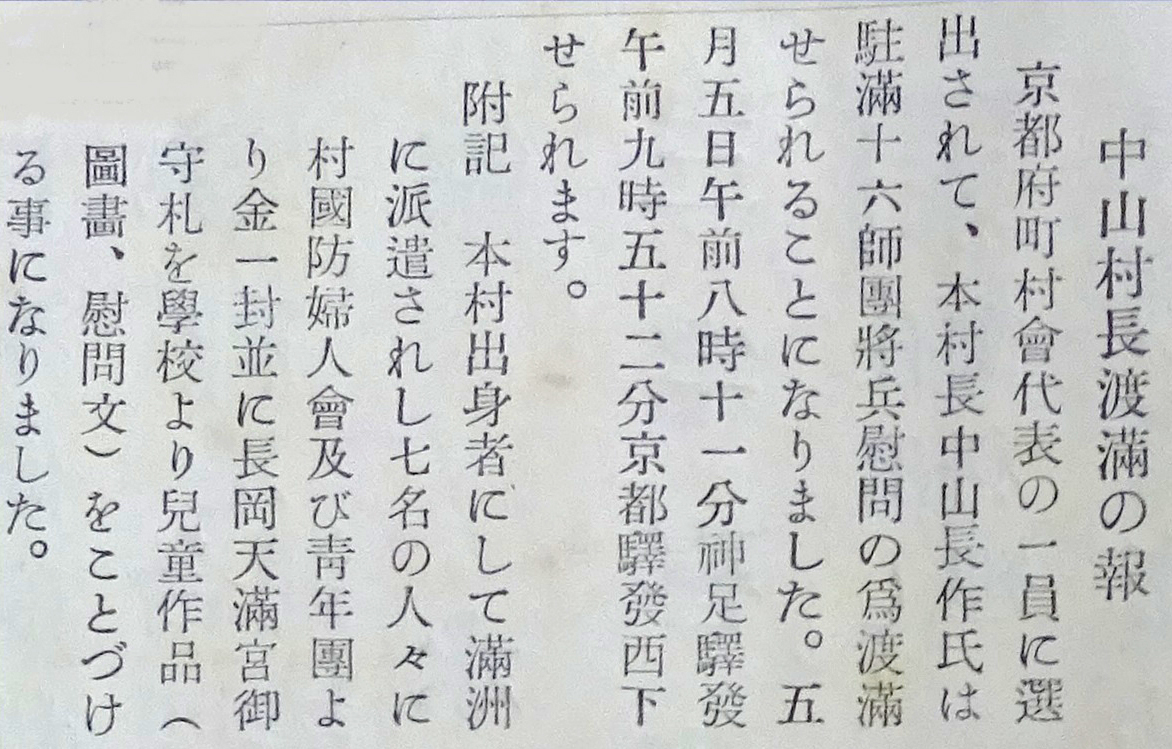 中山村長渡滿の報
京都府町村會代表の一員に選
出されて、本村長中山長作氏は
駐滿十六師團將兵慰問の爲渡滿
せられることになりました。五
月五日午前八時十一分神足驛發
午前九時五十二分京都驛發西下
せられます。
附記　本村出身者にして滿洲
に派遣されし七名の人々に
村國防婦人會及び靑年團よ
り金一封並に長岡天滿宮御
守札を學校より兒童作品（
圖畫、慰問文）をことづけ
る事になりました。